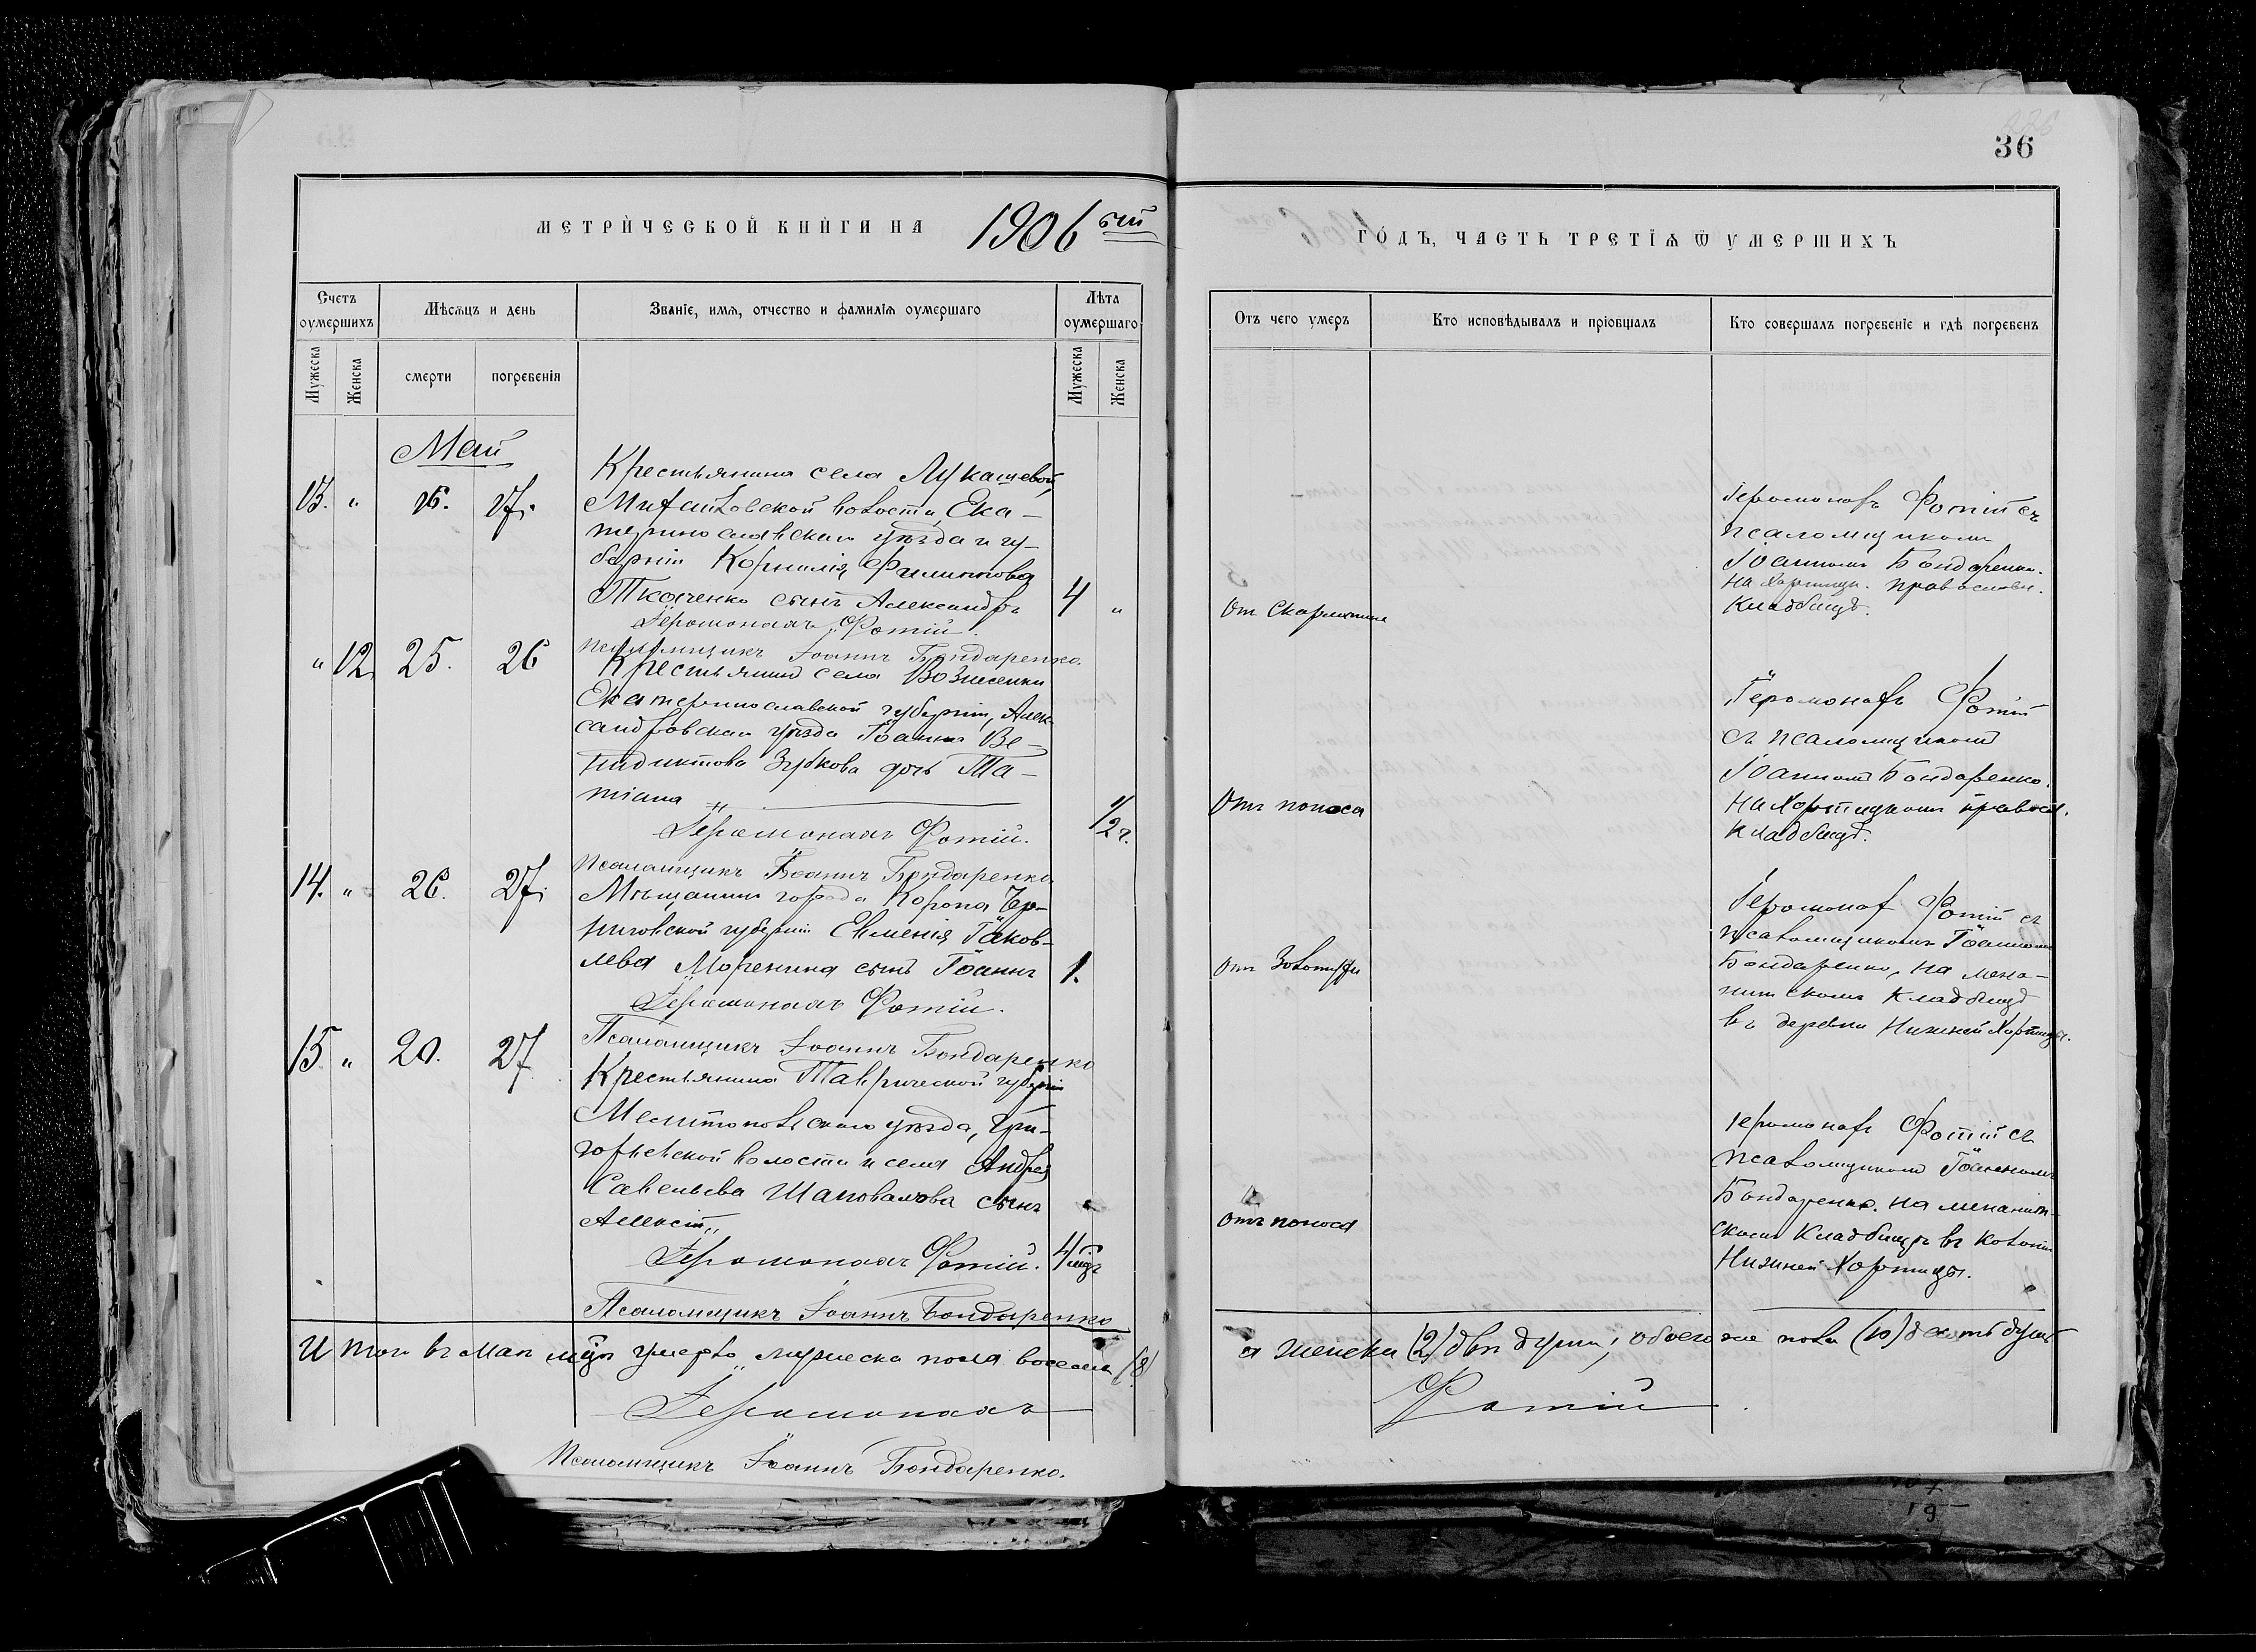 36
МЕТРИЧЕСКОЙ КНИГИ НА 1906 ый
ГОДЪ, ЧАСТЬ ТРЕТІЯ Ѿ УМЕРШИХЪ
Счетъ оумершихъ
Мѣсяцъ и день
Званіе, имя, отчество и фамилія оумершаго
Лѣта оумершаго
Отъ чего умеръ
Кто исповѣдывалъ и пріобщалъ
Кто совершалъ погребеніе и гдѣ погребенъ
Мужеска
Женска
смерти
погребенія
Мужеска
Женска
Май
13. "
17.
Крестьянина села Лукашевой,
Михайловской волости, Ека-
теринославскаго уѣзда и гу-
берніи Корнилія Филиппова
Ткаченко сынъ Александръ
4 "
Іеромонахъ Фотій.
Псаломщикъ Іоаннъ Бондаренко.
От Скарлатина
Іеромонахъ Фотій съ
псаломщикомъ
Іоанномъ Бондаренко.
на Хортицк. православн.
Кладбищѣ.
" 12
25.
26
Крестьянина села Вознесенки
Екатеринославской губерніи, Алек-
сандровскаго уѣзда Іоанна Ве-
ниdиктова Зубкова дочь Та-
тіана
1/2 г.
Іеромонахъ Фотій.
Псаломщикъ Іоаннъ Бондаренко
Отъ поноса
Іеромонахъ Фотій
съ псаломщикомъ
Іоанномъ Бондаренко.
на Хортицкомъ правосл.
Кладбищѣ.
14. "
26.
27.
Мѣщанина города Коропа Чер-
ниговской губерніи Евменія Іаков-
лева Моренина сынъ Іоаннъ
1.
Іеромонахъ Фотій.
Псаломщикъ Іоаннъ Бондаренко
отъ Золотухи
Іеромонахъ Фотій съ
псаломщикомъ Іоанномъ
Бондаренко, на мено-
нитскомъ Кладбищѣ
въ деревни Нижней Хортицы.
15 "
20.
27
Крестьянина Таврической губерніи
Мелитопольскаго уѣзда, Гри-
горьевской волости и села Андрея
Савельева Шаповалова сынъ
Алексій
4 мѣс.
Іеромонахъ Фотій.
Псаломщикъ Іоаннъ Бондаренко
отъ поноса
Іеромонахъ Фотій съ
псаломщикомъ Іоанномъ
Бондаренко. на менонит-
скомъ Кладбищѣ въ колоніи
Нижней Хортицы.
Итого въ Маѣ м-цѣ умерло мужеска пола восемь (8)
а женска (2) двѣ души; обоего же пола (10) десять душъ
Іеромонахъ Фотій
Псаломщикъ Іоаннъ Бондаренко.
19